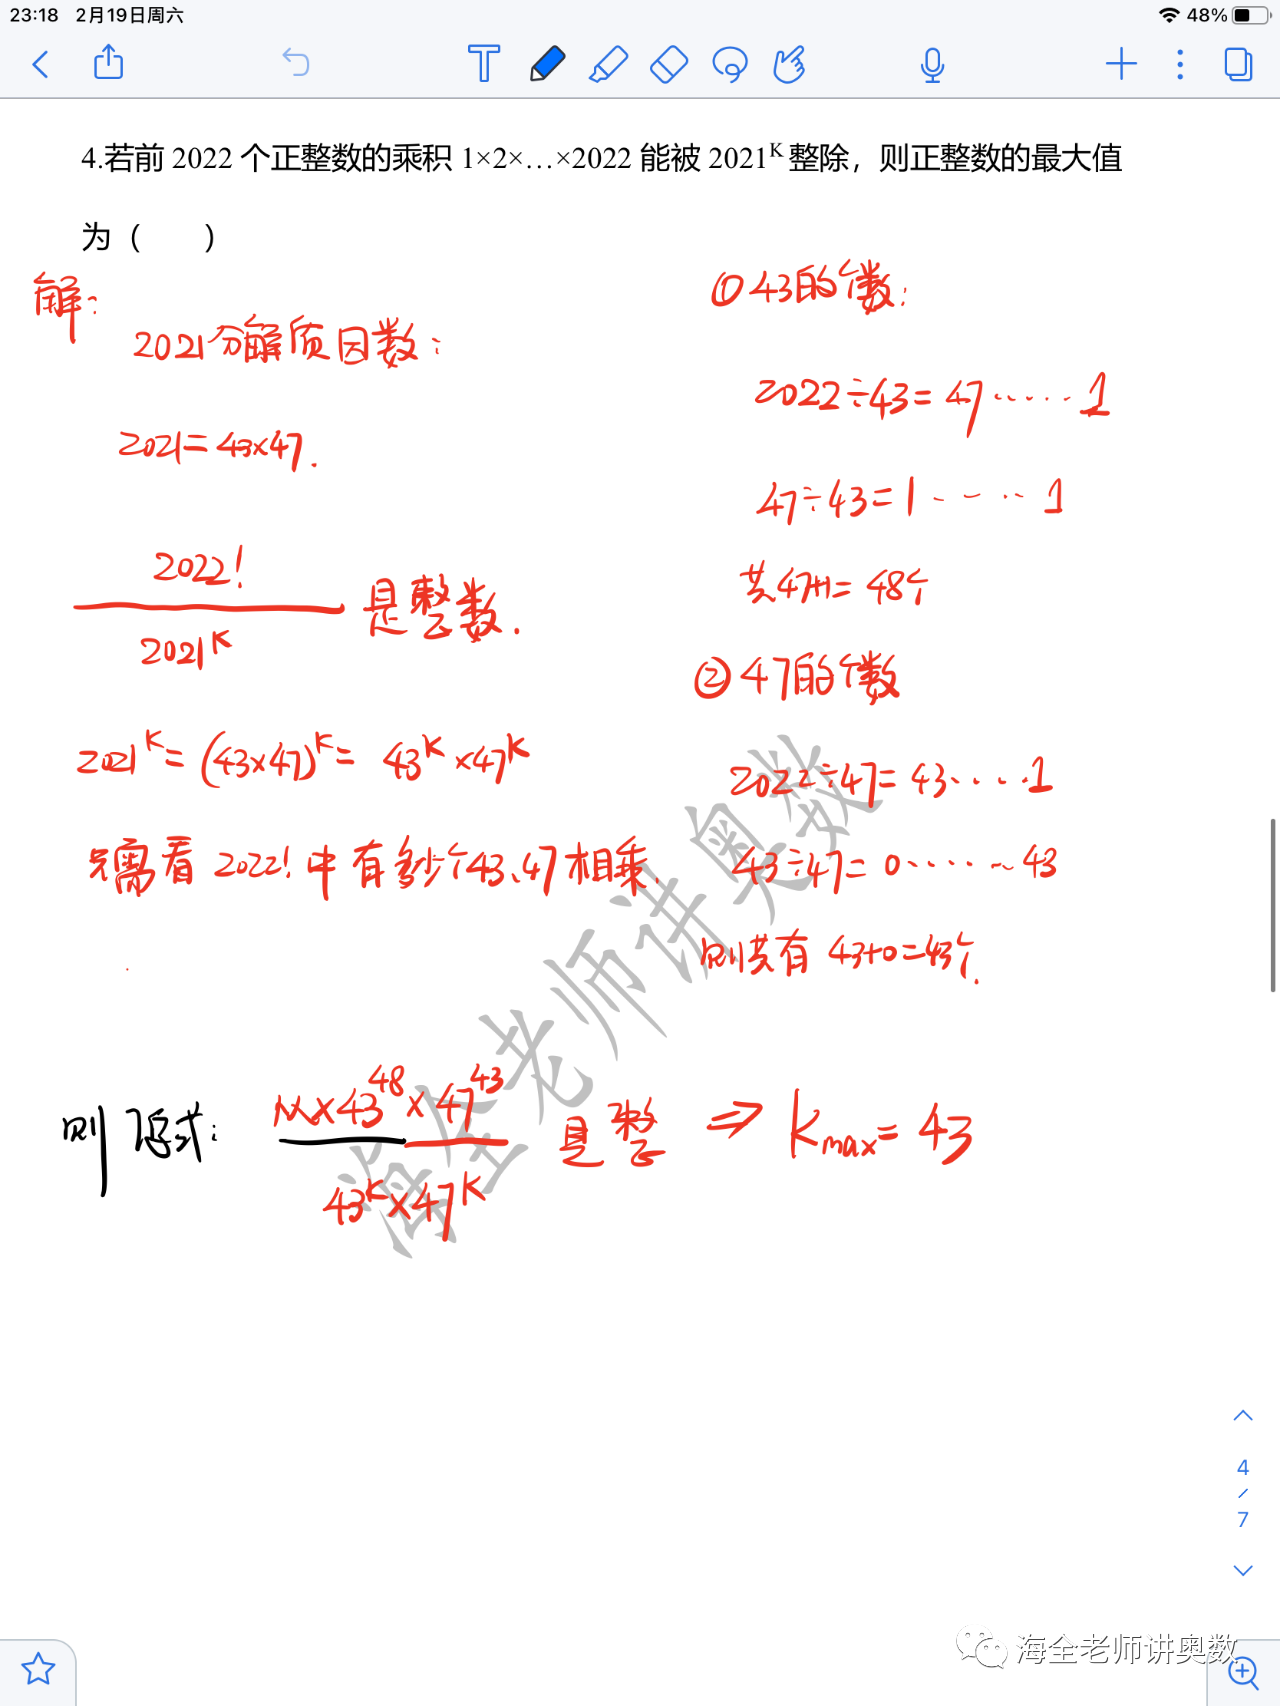 23:18 2月19日周六
48%
4.若前 2022 个正整数的乘积 1×2×…×2022 能被 2021^K 整除，则正整数的最大值
为（　　）
解：
2021分解质因数：
2021=43×47.
2022!
2021^K
是整数.
2021^K=(43×47)^K=43^K×47^K
只需看2022!中有多少个43、47相乘.
①43的个数：
2022÷43=47……1
47÷43=1……1
共47+1=48个
②47的个数
2022÷47=43……1
43÷47=0……43
则共有43+0=43个.
则原式：
M×43^48×47^43
43^K×47^K
是整
⇒ Kmax=43
海全老师讲奥数
4
/
7
海全老师讲奥数